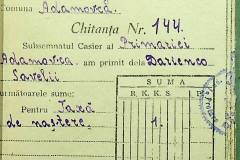 Comuna Adamovcă.
Chitanța Nr. 144.
Subsemnatul Casier al Primăriei
Adamovca am primit dela Darienco
Savelii
următoarele sume:
SUMA
R. K. K. S. E.
Pentru Taxă
de naștere,
1.